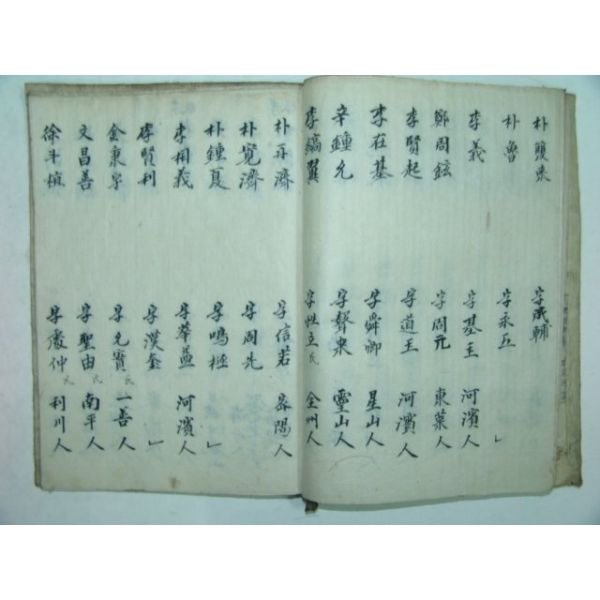 朴 字成輔
朴魯 字永五 〃
李義 字基主 河濱人
鄭周鉉 字周元 東萊人
李賢起 字道王 河濱人
李在基 字舜卿 星山人
辛鍾允 字聲 靈山人
李鎬翼 字性立氏 全州人
朴再濟 字信若 陽人
朴寬濟 字周先
朴鍾夏 字鳴 〃
李相義 字華益 河濱人
李賢利 字漢金 〃
金秉宇 字允實氏 一善人
文昌善 字聖由氏 南平人
徐斗植 字慶仲氏 利川人